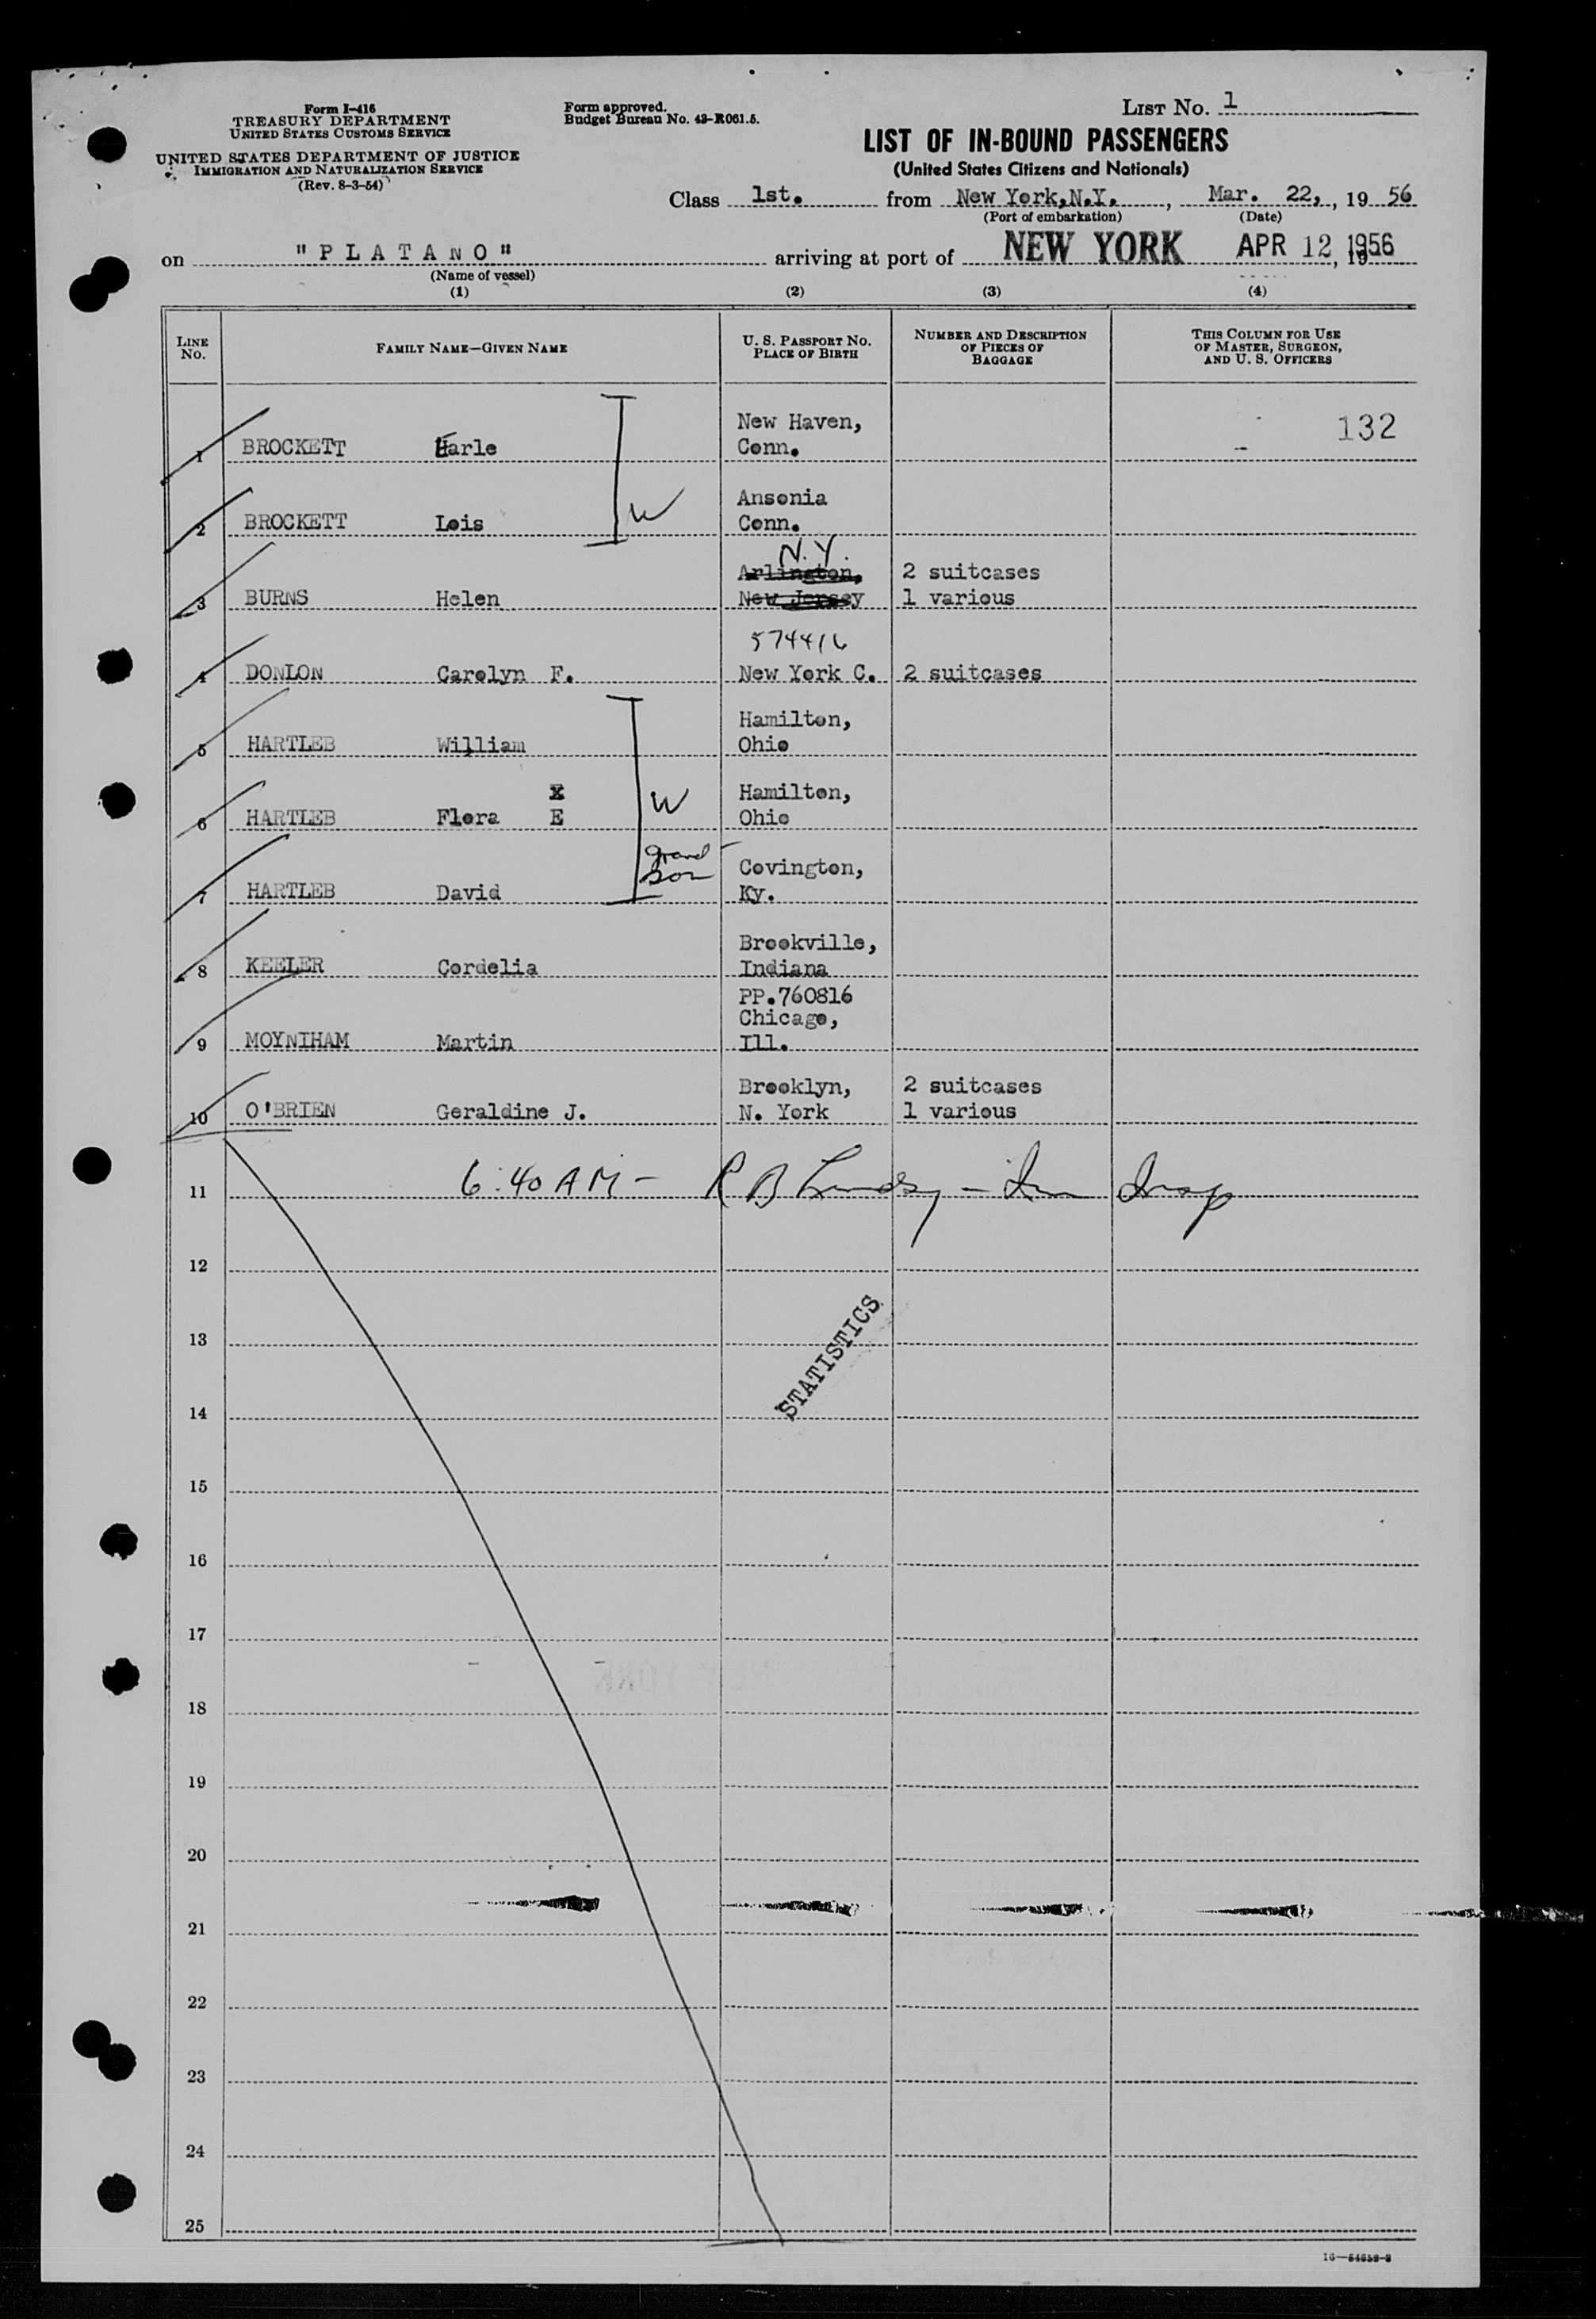 Form I-416
TREASURY DEPARTMENT
UNITED STATES CUSTOMS SERVICE
UNITED STATES DEPARTMENT OF JUSTICE
IMMIGRATION AND NATURALIZATION SERVICE
(Rev. 8-3-54)
Form approved.
Budget Bureau No. 43-R061.5.
LIST No. 1
LIST OF IN-BOUND PASSENGERS
(United States Citizens and Nationals)
Class 1st. from New York,N.Y. , Mar. 22, , 19 56
(Port of embarkation) (Date)
on "PLATANO" arriving at port of NEW YORK APR 12, 1956
(Name of vessel)
(1) (2) (3) (4)
LINE No. FAMILY NAME—GIVEN NAME U. S. PASSPORT No. PLACE OF BIRTH NUMBER AND DESCRIPTION OF PIECES OF BAGGAGE THIS COLUMN FOR USE OF MASTER, SURGEON, AND U. S. OFFICERS
New Haven, 132
1 BROCKETT Earle Conn.
Ansonia
2 BROCKETT Lois W Conn.
N.Y.
Arlington, 2 suitcases
3 BURNS Helen New Jersey 1 various
574416
4 DONLON Carolyn F. New York C. 2 suitcases
Hamilton,
5 HARTLEB William Ohio
X W Hamilton,
6 HARTLEB Flora E Ohio
grand Covington,
7 HARTLEB David son Ky.
Brookville,
8 KEELER Cordelia Indiana
PP.760816
Chicago,
9 MOYNIHAM Martin Ill.
Brooklyn, 2 suitcases
10 O'BRIEN Geraldine J. N. York 1 various
11 6:40 AM - R B Lindsy - Im Insp
12
13
STATISTICS
14
15
16
17
18
19
20
21
22
23
24
25